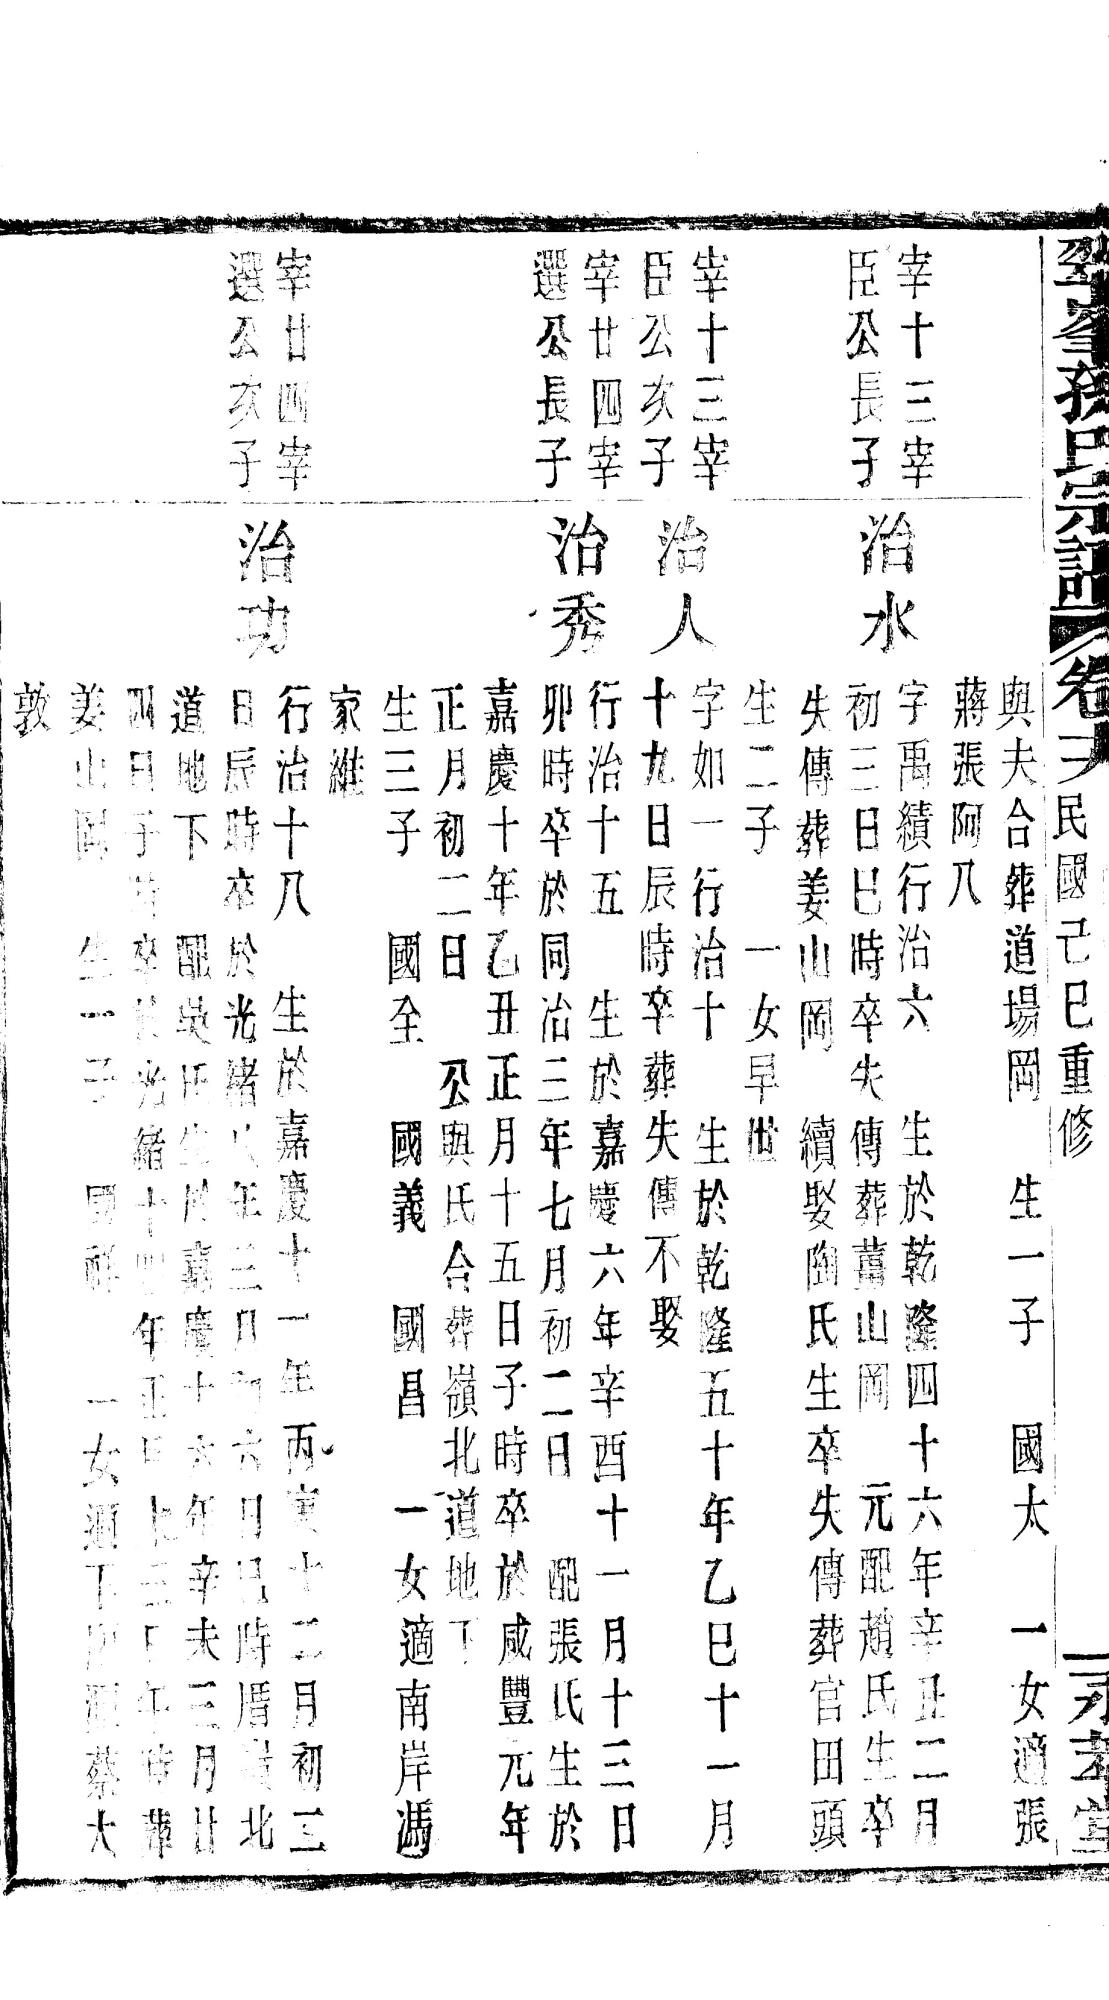 孫氏宗譜
卷
民國己巳重修
孝堂
與夫合葬道場岡 生一子 國太 一女適張
蔣張阿八
宰十三宰
臣公長子
治水
字禹績行治六 生於乾隆四十六年辛丑二月
初三日巳時卒失傳葬薑山岡 元配趙氏生卒
失傳葬姜山岡 續娶陶氏生卒失傳葬官田頭
生二子 一女早世
宰十三宰
臣公亥子
治人
字如一 行治十 生於乾隆五十年乙巳十一月
十九日辰時卒葬失傳不娶
宰廿四宰
選公長子
治秀
行治十五 生於嘉慶六年辛酉十一月十三日
卯時卒於同治三年七月初二日 配張氏生於
嘉慶十年乙丑正月十五日子時卒於咸豐元年
正月初二日 公與氏合葬嶺北道地下
生三子 國全 國義 國昌 一女適南岸馮
家維
宰廿四宰
選公亥子
治功
行治十八 生於嘉慶十一年丙寅十二月初三
日辰時卒於光緒八年三月初六日巳時厝嶺北
道地下 配吳氏生於嘉慶十六年辛未三月廿
四日子時卒於光緒十四年正月 午時葬
姜山岡 生一子 國祥 一女適下 蔡大
敦